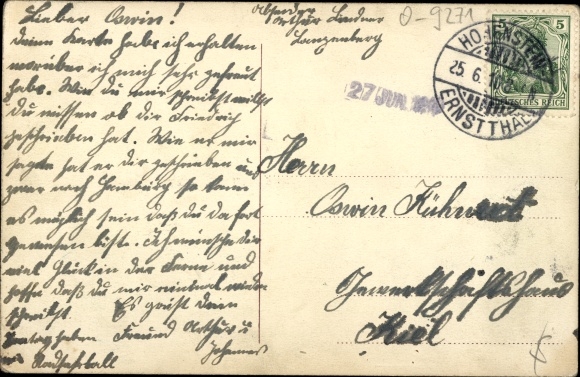 Lieber Oswin!
deine Karte habe ich erhalten
worüber ich mich sehr gefreut
habe. Wie du mir schreibst willst
du wissen ob dir Friedrich
geschrieben hat. Wie er mir
sagte hat er dir geschrieben und
zwar nach Hamburg so kann
es möglich sein daß du da fort
gewesen bist. Ich wünsche dir
viel Glück in der Ferne und
hoffe daß du mir einmal wieder
schreibst. Es grüßt dein
Freund Arthur u
Johannes
haben
Radfahrball
Absender
Arthur Lindner
Langenberg
O-9271
HOHENSTEIN-
25.6.
ERNSTTHAL
5
DEUTSCHES REICH
27 JUN.
Herrn
Oswin Kühnert
Gewerkschaftshaus
Kiel